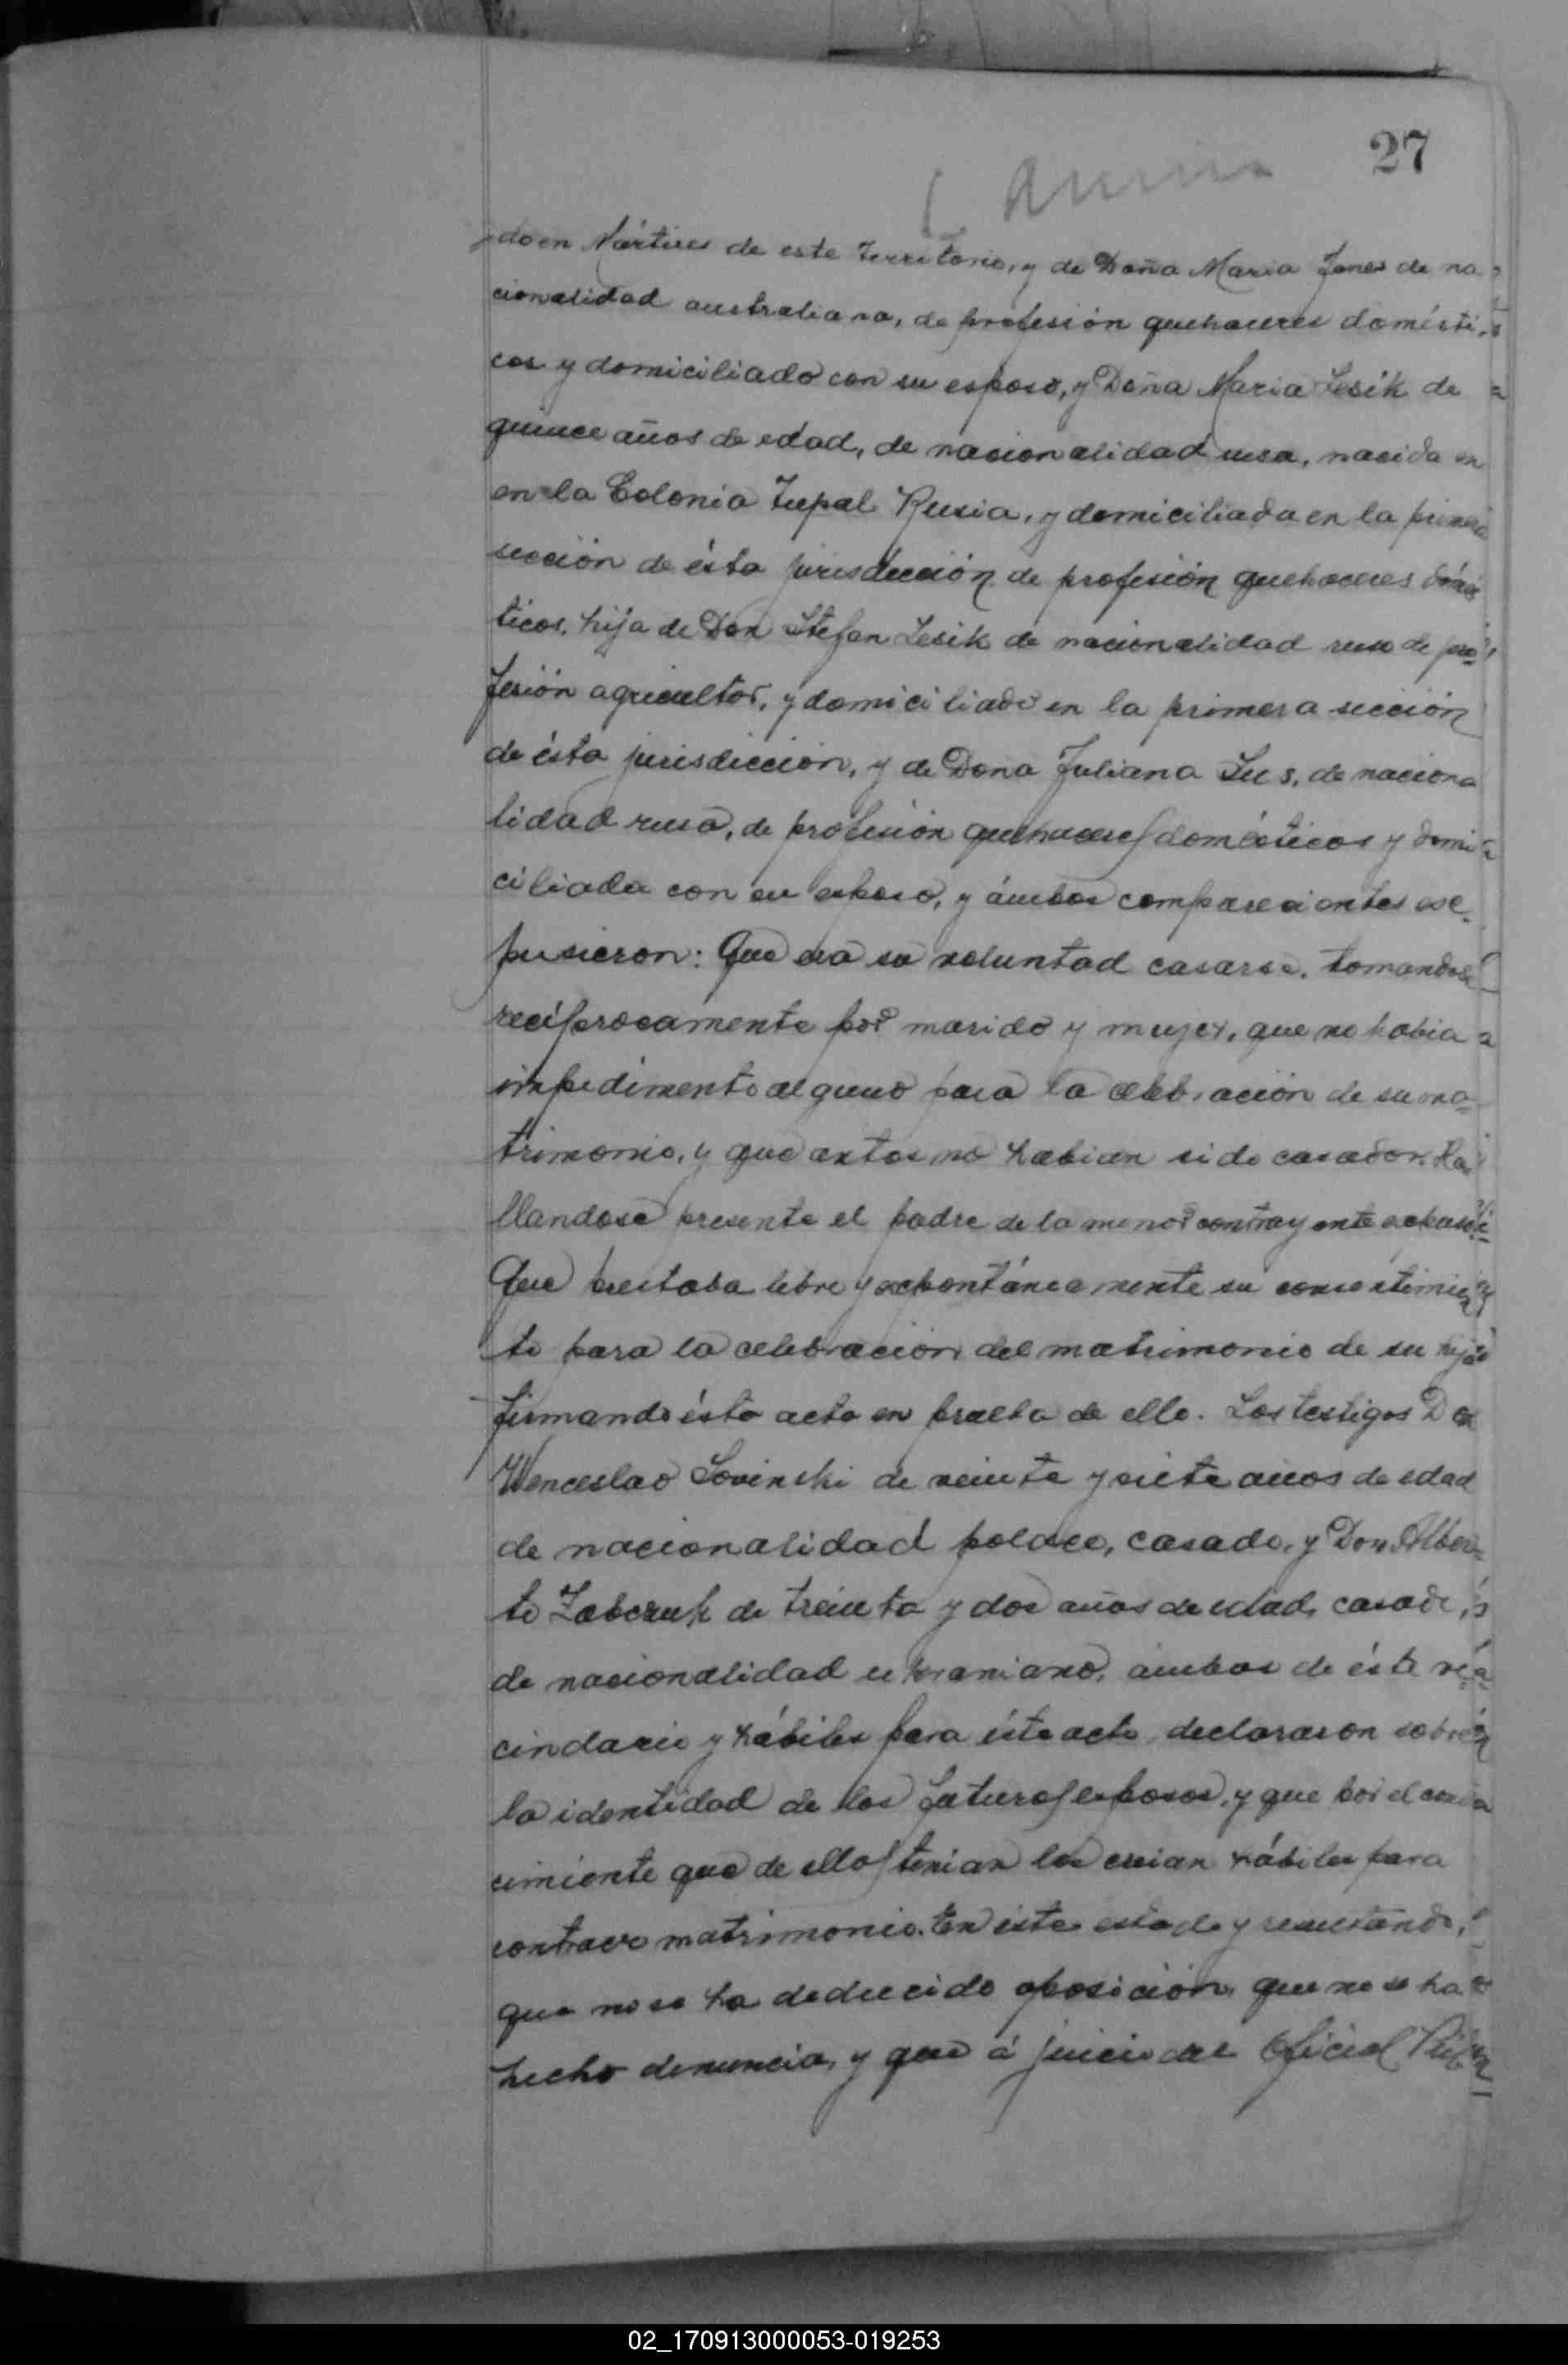 27
do en Mártires de este Territorio, y de Doña Maria Jones de na
cionalidad australiana, de profesión quehaceres domésti-
cos y domiciliado con su esposo, y Doña Maria Lesik de
quince años de edad, de nacionalidad rusa, nacida en
en la Colonia Tupal Rusia, y domiciliada en la primera
sección de ésta jurisdicción de profesión quehaceres domés
ticos, hija de Don Stefan Lesik de nacionalidad ruso de pro-
fesión agricultor, y domiciliado en la primera sección
de ésta jurisdicción, y de Doña Juliana Sus, de naciona
lidad rusa, de profesión quehaceres domésticos y domi
ciliada con su esposo, y ámbos comparecientes ex-
pusieron: Que era su voluntad casarse, tomandose
recíprocamente por marido y mujer, que no habia
impedimento alguno para la celebración de su ma-
trimonio, y que antes no habian sido casados. Ha
llandose presente el padre de la menor contrayente expuso:
Que prestaba libre y expontáneamente su consentimien
to para la celebración del matrimonio de su hija
firmando ésta acta en prueba de ello. Los testigos Don
Wenceslao Sovinski de veinte y siete años de edad
de nacionalidad polaco, casado, y Don Alber-
to Zabczuk de treinta y dos años de edad, casado,
de nacionalidad ukraniano, ámbos de éste ve-
cindario y hábiles para éste acto, declararon sobre
la identidad de los futuros esposos, y que por el cono
cimiento que de ellos tenian los creian hábiles para
contraer matrimonio. En éste estado y resultando,
que no se ha deducido oposición, que no se ha
hecho denuncia, y que á juicio del Oficial Púb
02_170913000053-019253